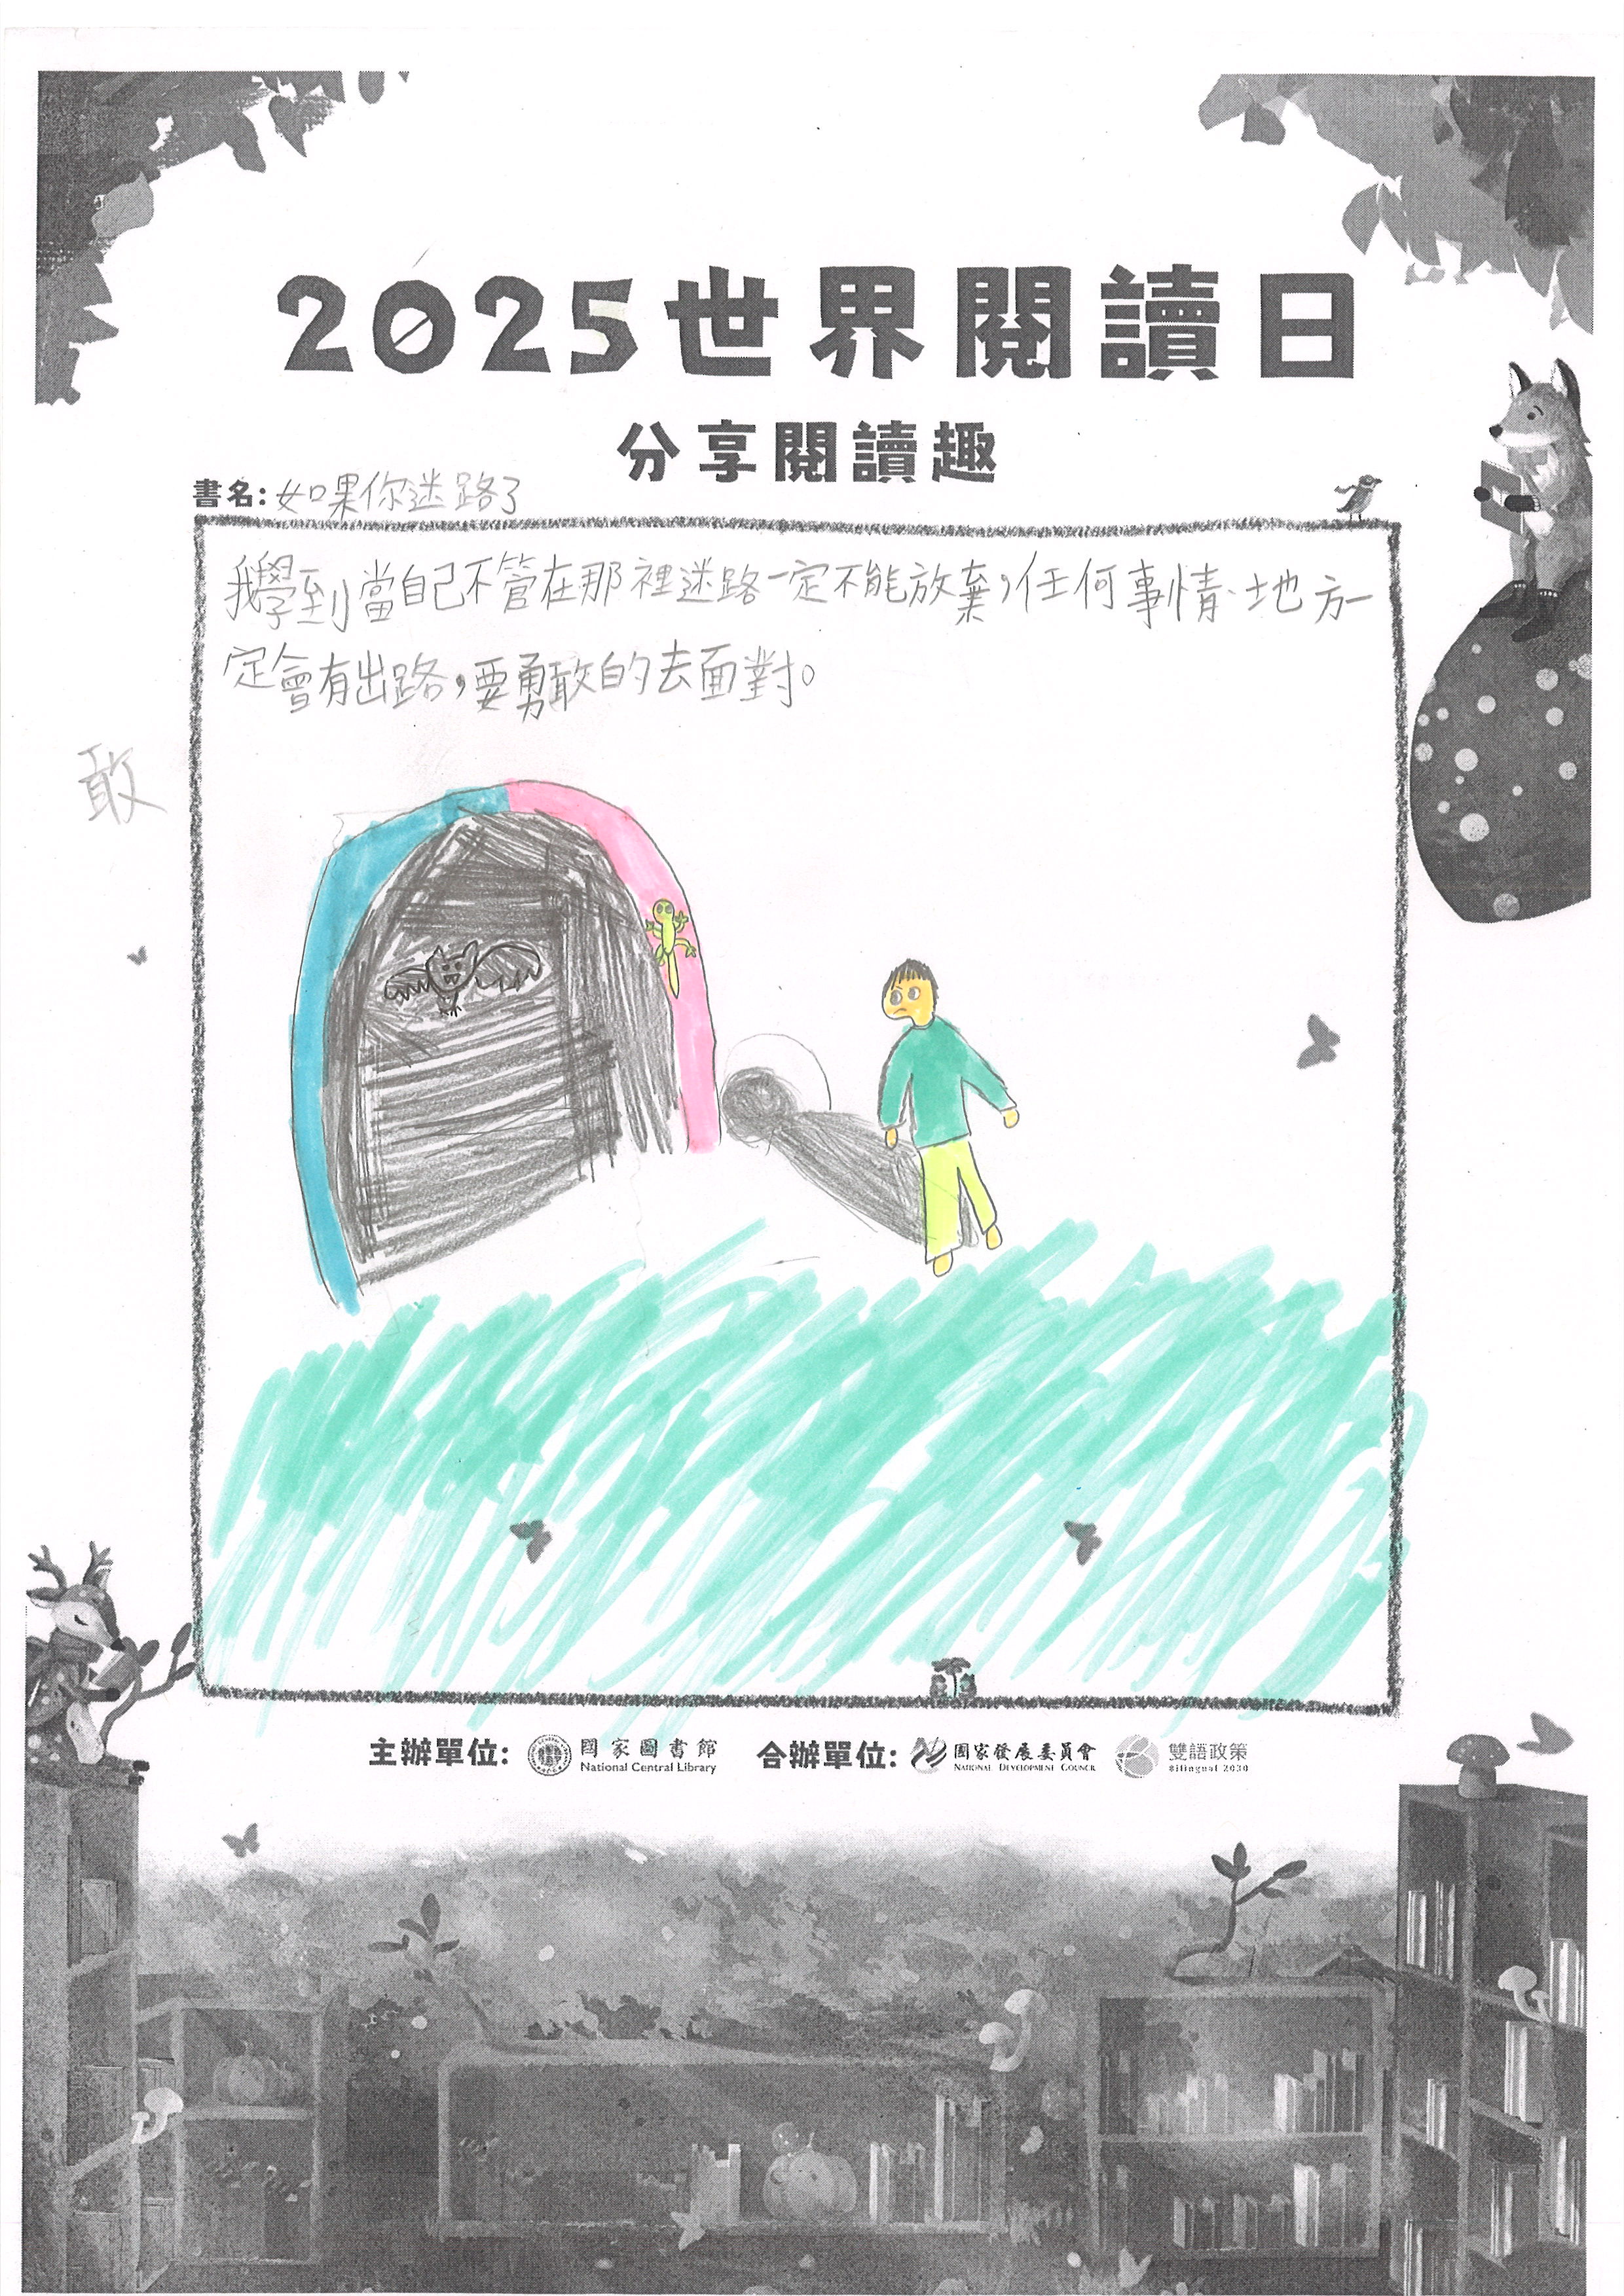 2025世界閱讀日
分享閱讀趣
書名：如果你迷路了
我學到當自己不管在那裡迷路一定不能放棄，任何事情、地方一
定會有出路，要勇敢的去面對。
敢
主辦單位： 國家圖書館 National Central Library 合辦單位： 國家發展委員會 NATIONAL DEVELOPMENT COUNCIL 雙語政策 Bilingual 2030